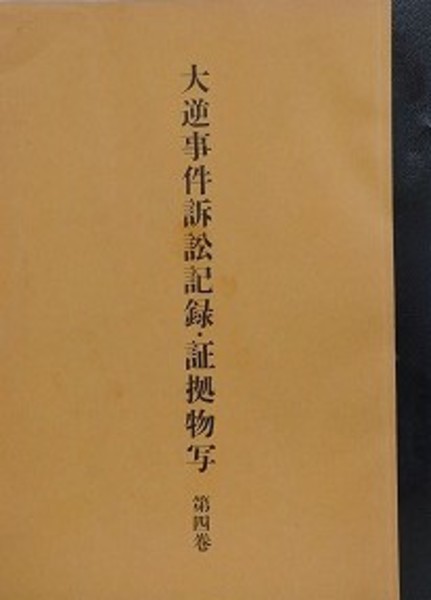 大逆事件訴訟記録・証拠物写
第四巻